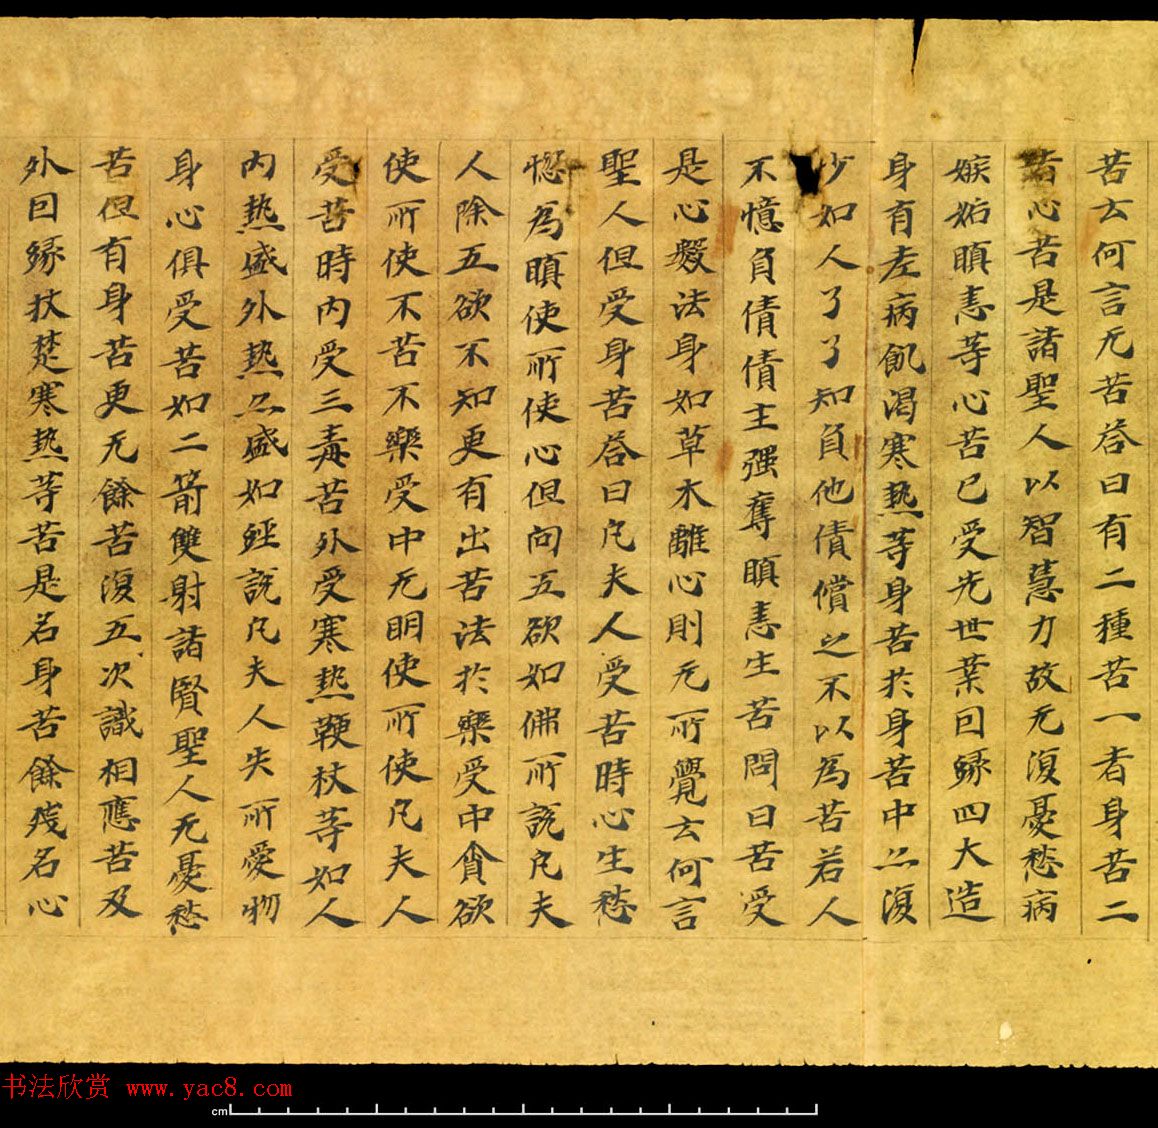 苦云何言无苦荅曰有二種苦一者身苦二
者心苦是諸聖人以智慧力故无復憂愁病
嫉妬瞋恚等心苦已受先世業因緣四大造
身有老病飢渴寒熱等身苦於身苦中亦復
少如人了了知負他債償之不以為苦若人
不憶負債債主强奪瞋恚生苦問曰苦受
是心數法身如草木離心則无所覺云何言
聖人但受身苦荅曰凡夫人受苦時心生愁
惱為瞋使所使心但向五欲如佛所說凡夫
人除五欲不知更有出苦法於樂受中貪欲
使所使不苦不樂受中无明使所使凡夫人
受苦時內受三毒苦外受寒熱鞭杖等如人
內熱盛外熱亦盛如經說凡夫人失所愛物
身心俱受苦如二箭雙射諸賢聖人无憂愁
苦但有身苦更无餘苦復五次識相應苦及
外因緣杖楚寒熱等苦是名身苦餘殘名心
书法欣赏 www.yac8.com
cm